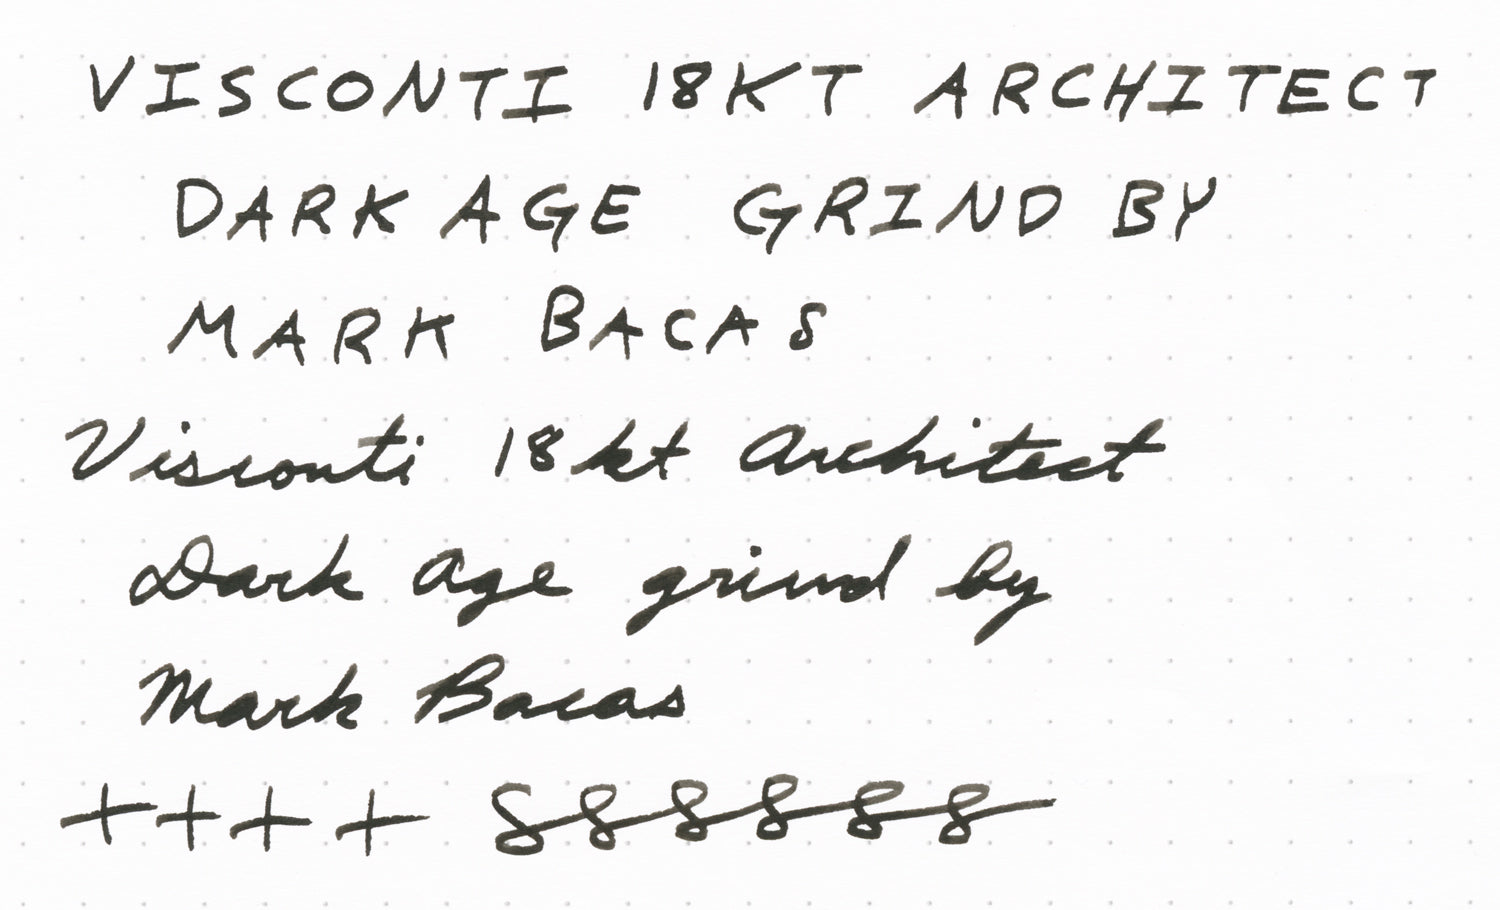 VISCONTI 18KT ARCHITECT
DARK AGE GRIND BY
MARK BACAS
Visconti 18kt Architect
Dark Age grind by
Mark Bacas
++++ 888888